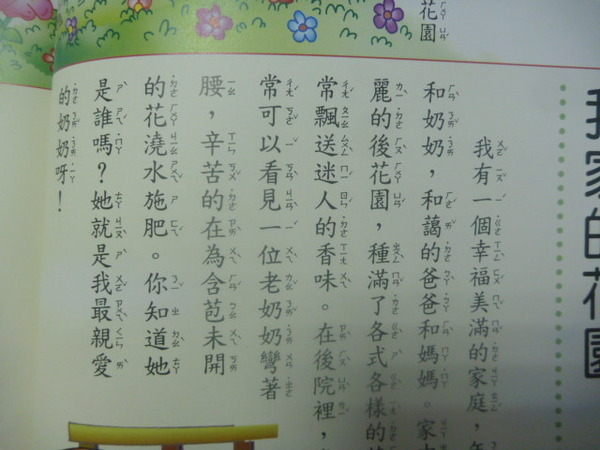 花園
我家的花園
我有一個幸福美滿的家庭，
和奶奶，和藹的爸爸和媽媽。家
麗的後花園，種滿了各式各樣的
常飄送迷人的香味。在後院裡，
常可以看見一位老奶奶彎著
腰，辛苦的在為含苞未開
的花澆水施肥。你知道她
是誰嗎？她就是我最親愛
的奶奶呀！